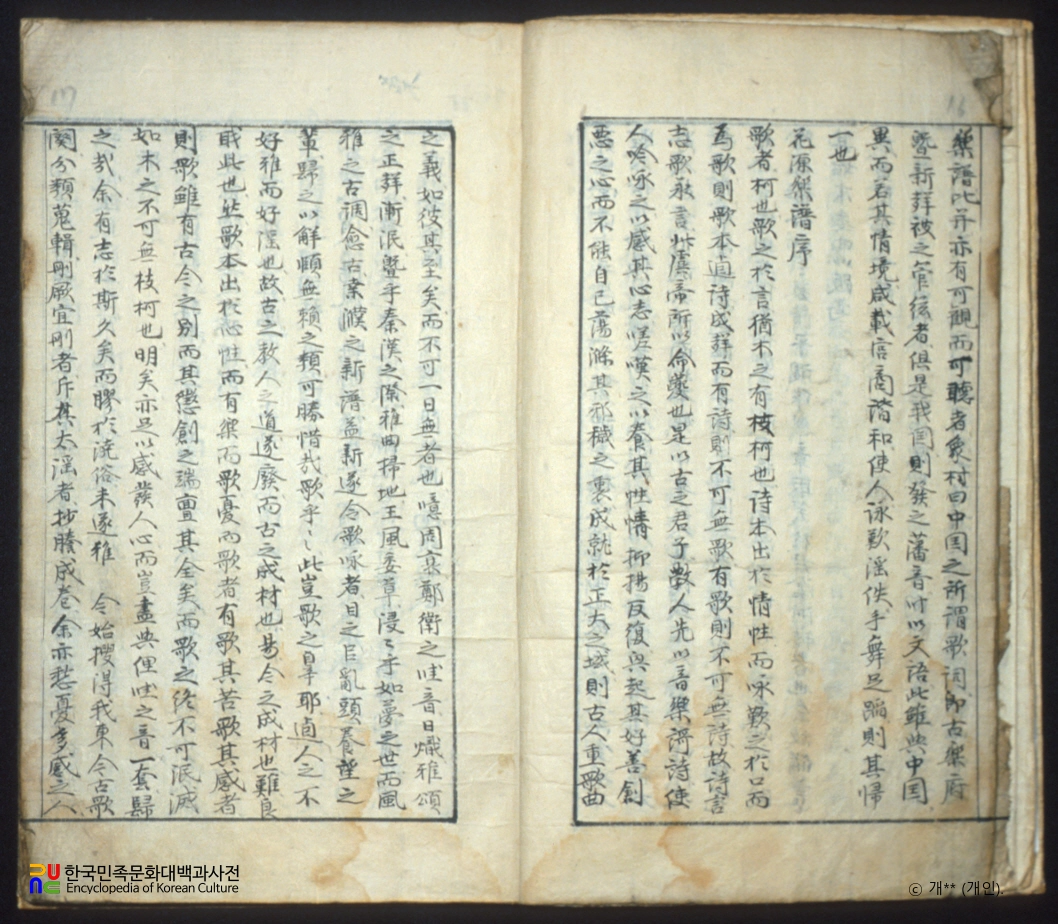 16
樂譜比并亦有可觀而可聽者象村曰中国之所謂歌詞即古樂府
曁新聲被之管絃者俱是我国則發之藩音叶以文語此雖與中国
異而若其情境咸載宮商諧和使人詠歎淫佚手舞足蹈則其㱕
一也
花源樂譜序
歌者柯也歌之於言猶木之有枝柯也诗本出於情性而咏歎之於口而
爲歌則歌本直诗成聲而有诗則不可無歌有歌則不可無诗故诗言
志歌永言此虞帝所以命夔也是以古之君子教人先以音樂謌诗使
人唫咏之以感其心志嗟嘆之以養其性情抑揚反復興起其好善創
惡之心而不能自已蕩滌其邪穢之裏成就於正大之域則古人重歌曲
17
之義如彼其至矣而不可一日無者也噫周衰鄭衛之哇音日熾雅頌
之正聲漸泯曁乎秦漢之際雅曲掃地王風委草浸〻乎如夢之世而風
雅之古調愈古桑濮之新譜益新遂令歌咏者目之巨亂頭養望之
輩歸之以解頤無賴之類可勝惜哉歌乎〻此豈歌之辠耶直人之不
好雅而好淫也故古之敎人之道遂廢而古之成材也易今之成材也難良
以此也然歌本出於心性而有樂而歌憂而歌者有歌其苦歌其感者
則歌雖有古今之別而其懲創之端亶其全矣而歌之終不可泯滅
如木之不可無枝柯也明矣亦足以感發人心而豈盡與俚哇之音一套歸
之哉余有志於斯久矣而膠於澆俗未遂雅 今始搜得我東今古歌
闋分類蒐輯刪厥宜刪者斥其太淫者抄謄成卷余亦愁憂多感之人
한국민족문화대백과사전
Encyclopedia of Korean Culture
ⓒ 개** (개인).